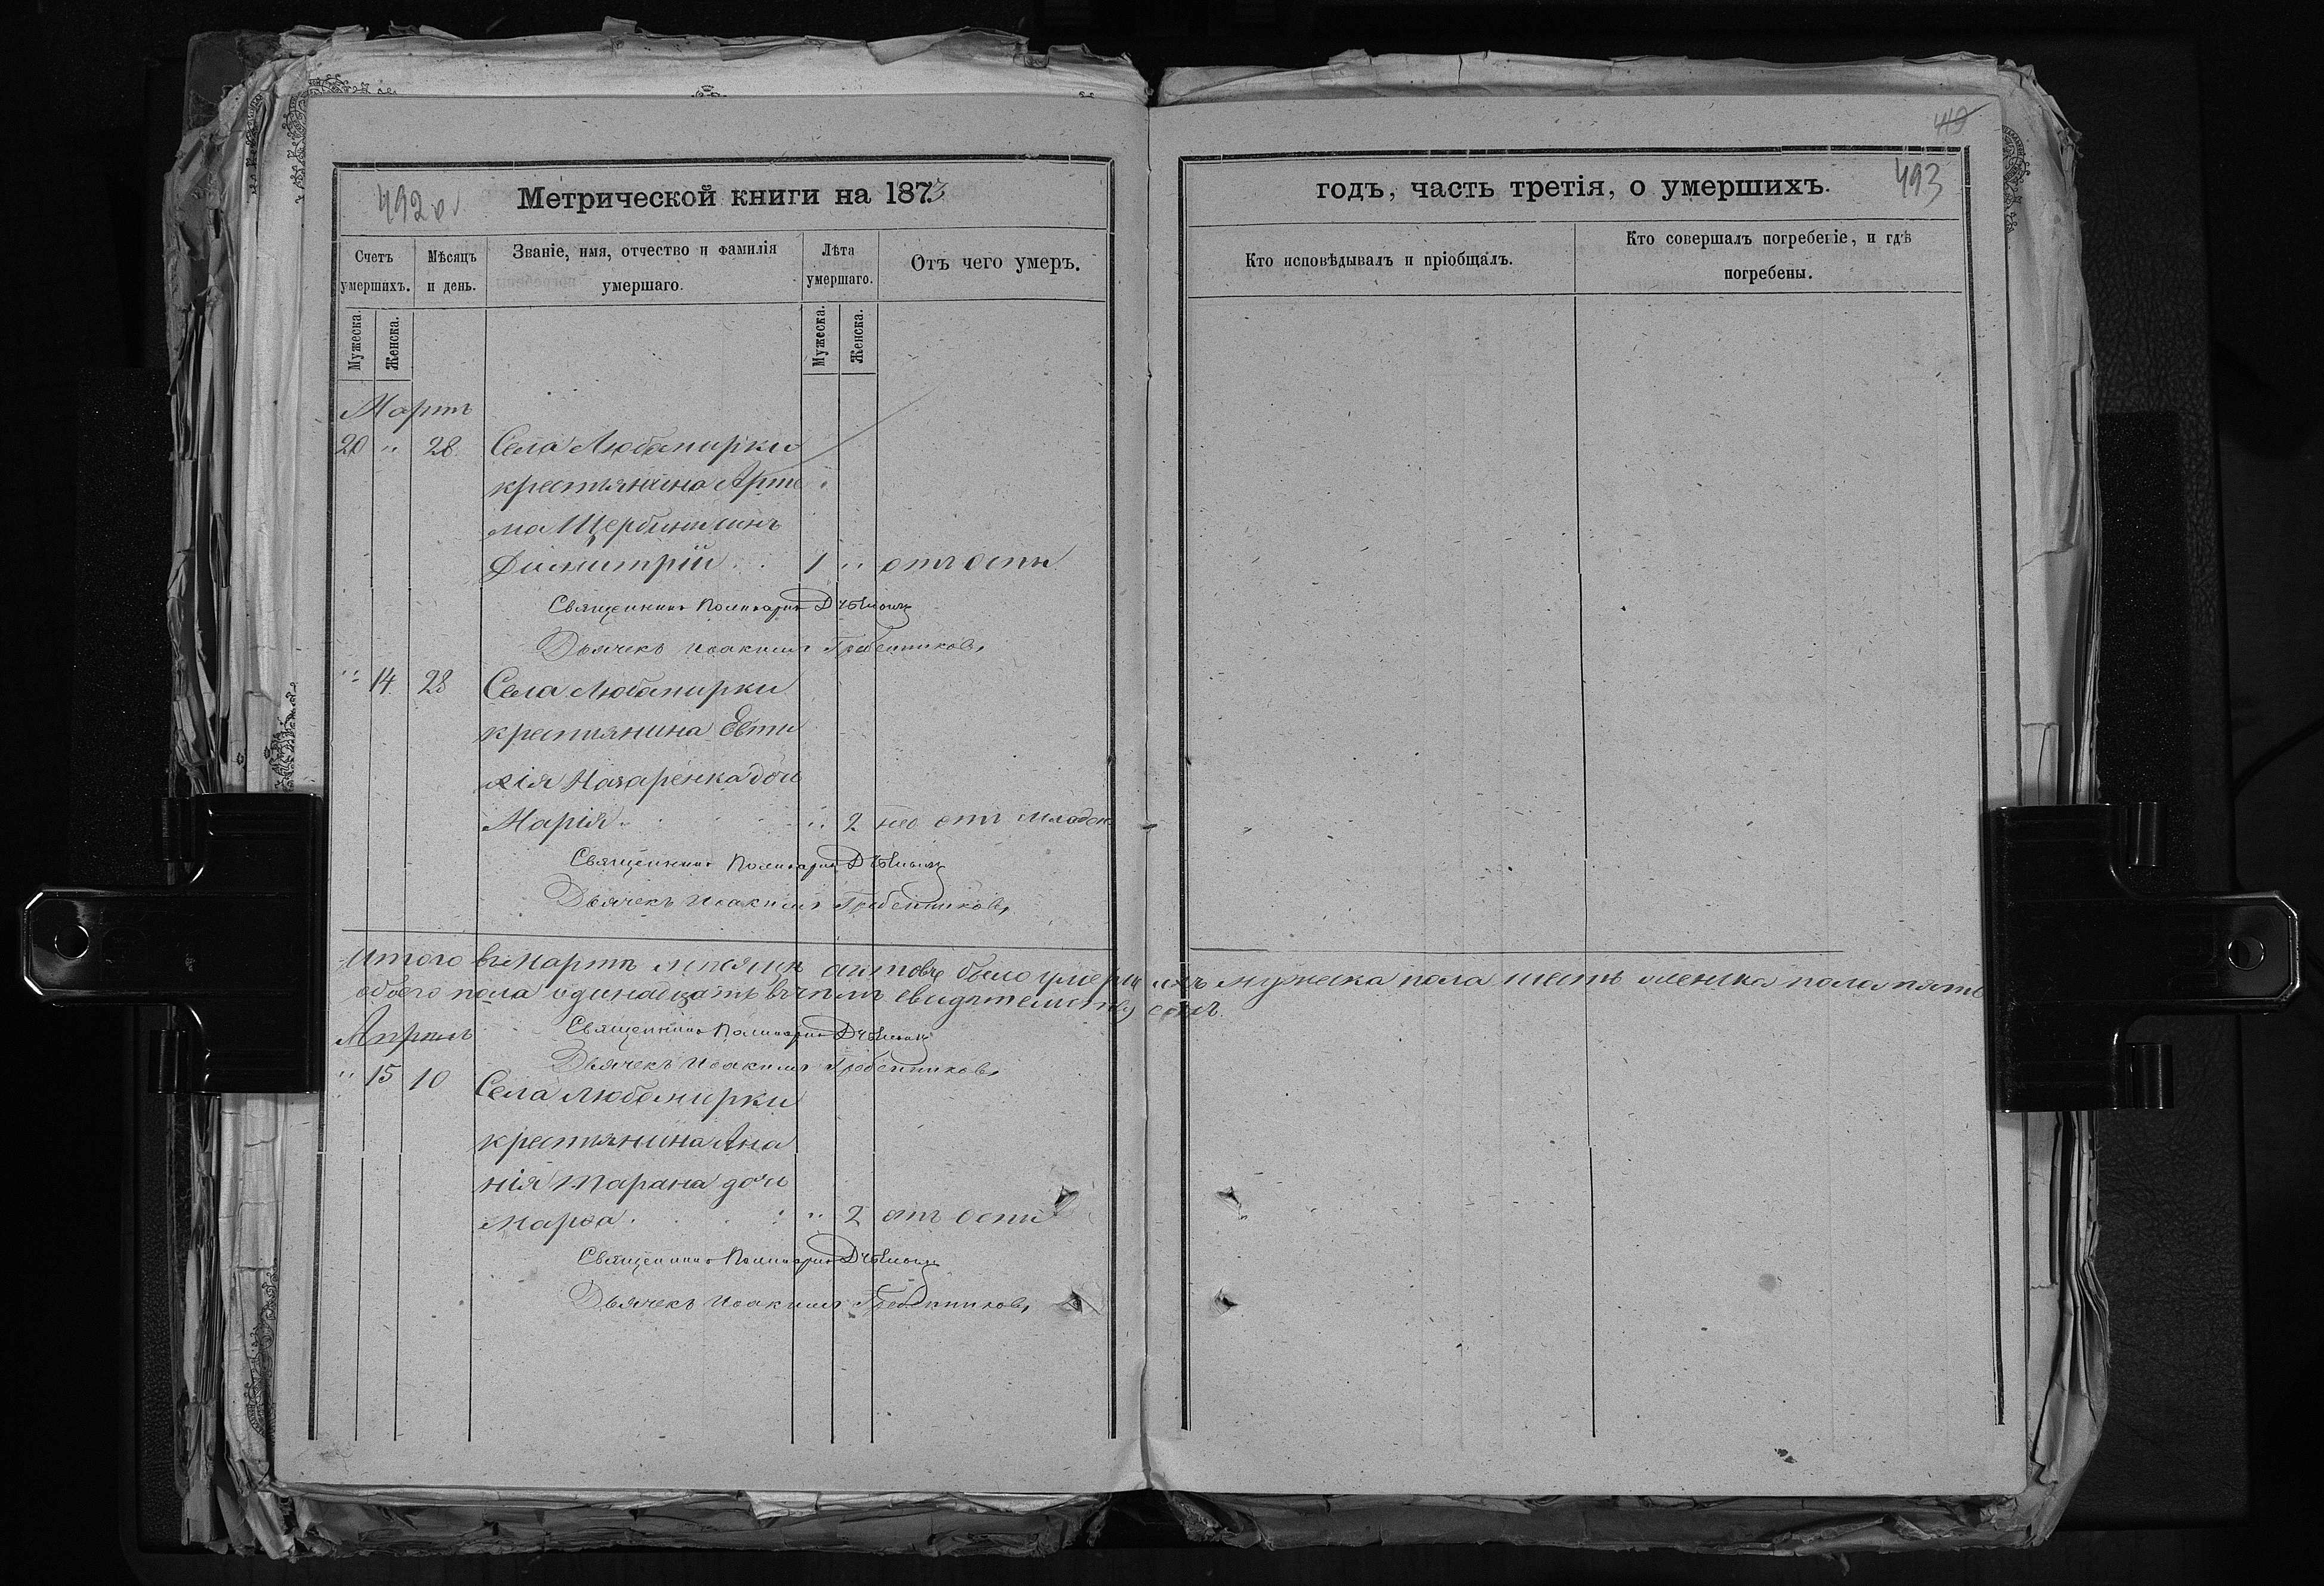 492 об
Метрической книги на 1873
Счетъ умершихъ.
Мѣсяцъ и день.
Званіе, имя, отчество и фамилія умершаго.
Лѣта умершаго.
Отъ чего умеръ.
Мужеска.
Женска.
Мужеска.
Женска.
Мартъ
20 " 28 Села Любомирки
крестьянина Арте
ма Щербини сынъ
Димитрій 1 " отъ оспы
Священникъ Поликарпъ
Дьячекъ Иоакимъ Гребенниковъ
" 14 28 Села Любомирки
крестьянина Евти
хія Назаренка дочь
Марія 2 отъ младен
Священникъ Поликарпъ
Дьячекъ Иоакимъ Гребенниковъ
Итого въ Мартѣ мѣсяцѣ было умершихъ мужеска пола шесть женска пола пять
обоего пола одинадцать въ чемъ свидѣтельствуемъ
Священникъ Поликарпъ
Апрѣль
Дьячекъ Иоакимъ Гребенниковъ
" 15 10 Села Любомирки
крестьянина Ана
нія Тарана дочь
Марѳа " 2 отъ оспы
Священникъ Поликарпъ
Дьячекъ Иоакимъ Гребенниковъ
493
годъ, часть третія, о умершихъ.
Кто исповѣдывалъ и пріобщалъ.
Кто совершалъ погребеніе, и гдѣ
погребены.